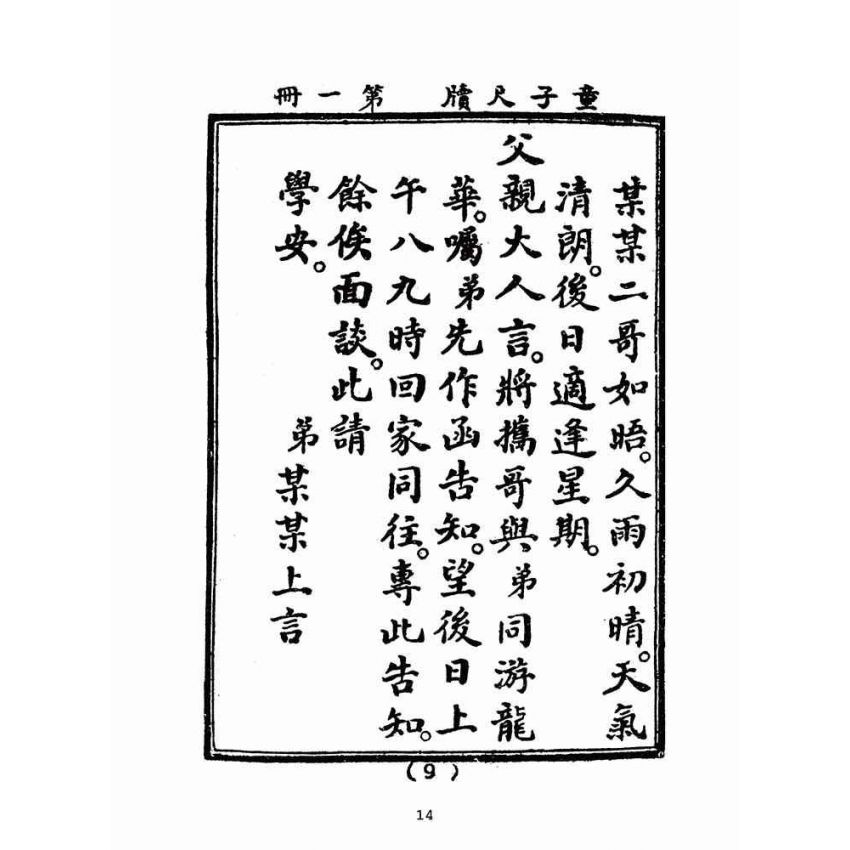 童子尺牘 第一冊
某某二哥如晤。久雨初晴。天氣
清朗。後日適逢星期。
父親大人言。將攜哥與弟同游龍
華。囑弟先作函告知。望後日上
午八九時回家同往。專此告知。
餘俟面談。此請
學安。
弟某某上言
(9)
14